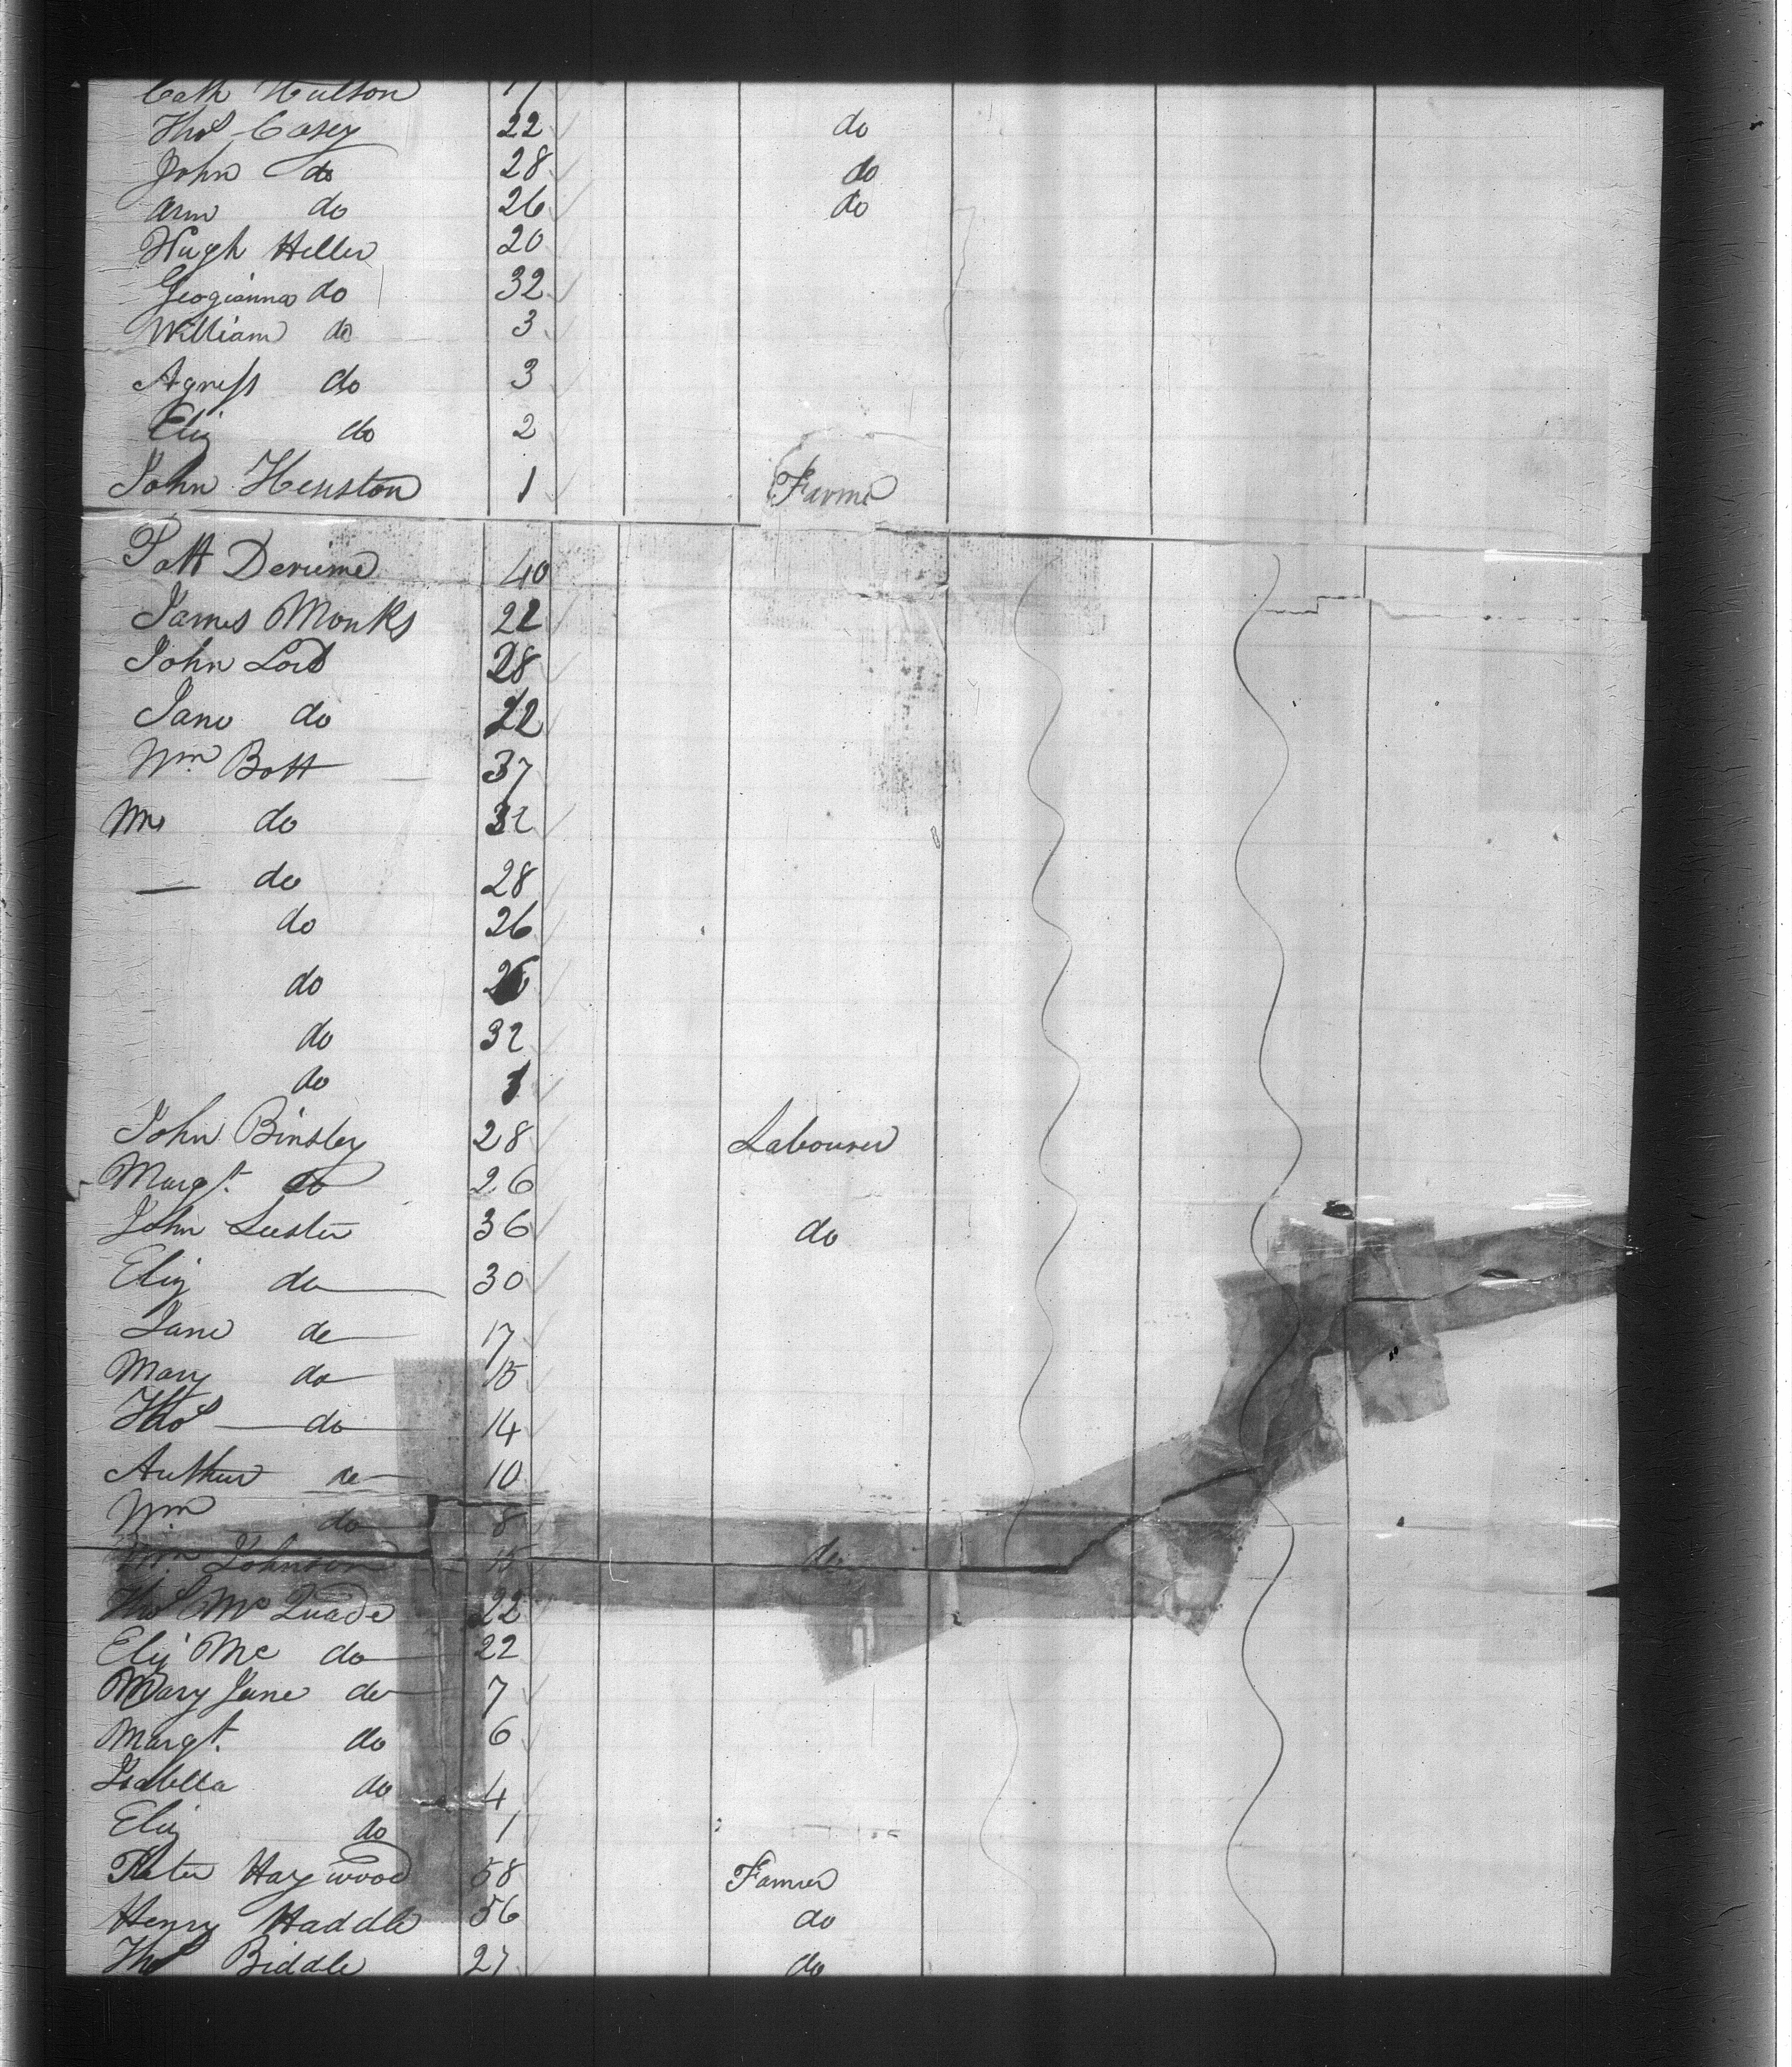 Cath Hutson 17
Thos Casey 22 do
John do 28 do
Ann do 26 do
Hugh Heller 20
Geogianna do 32
William do 3
Agness do 3
Eliz do 2
John Henston 1 Farme
Patt Derieme 40
James Monks 22
John Lord 28
Jane do 22
Wm Bott 37
Mrs do 32
— do 28
do 26
do 26
do 32
do 1
John Binsley 28 Labourer
Margt. do 26
John Luster 36 do
Eliz do 30
Jane do 17
Mary do 15
Thos do 14
Arthur do 10
Wm do 8
Wm Johnson 15 do
Thos Mc Quade 22
Eliz Mc do 22
Mary Jane do 7
Margt. do 6
Isabella do 4
Eliz do 1
Peter Haywood 58 Famer
Henry Haddle 56 do
Thos Biddle 27 do